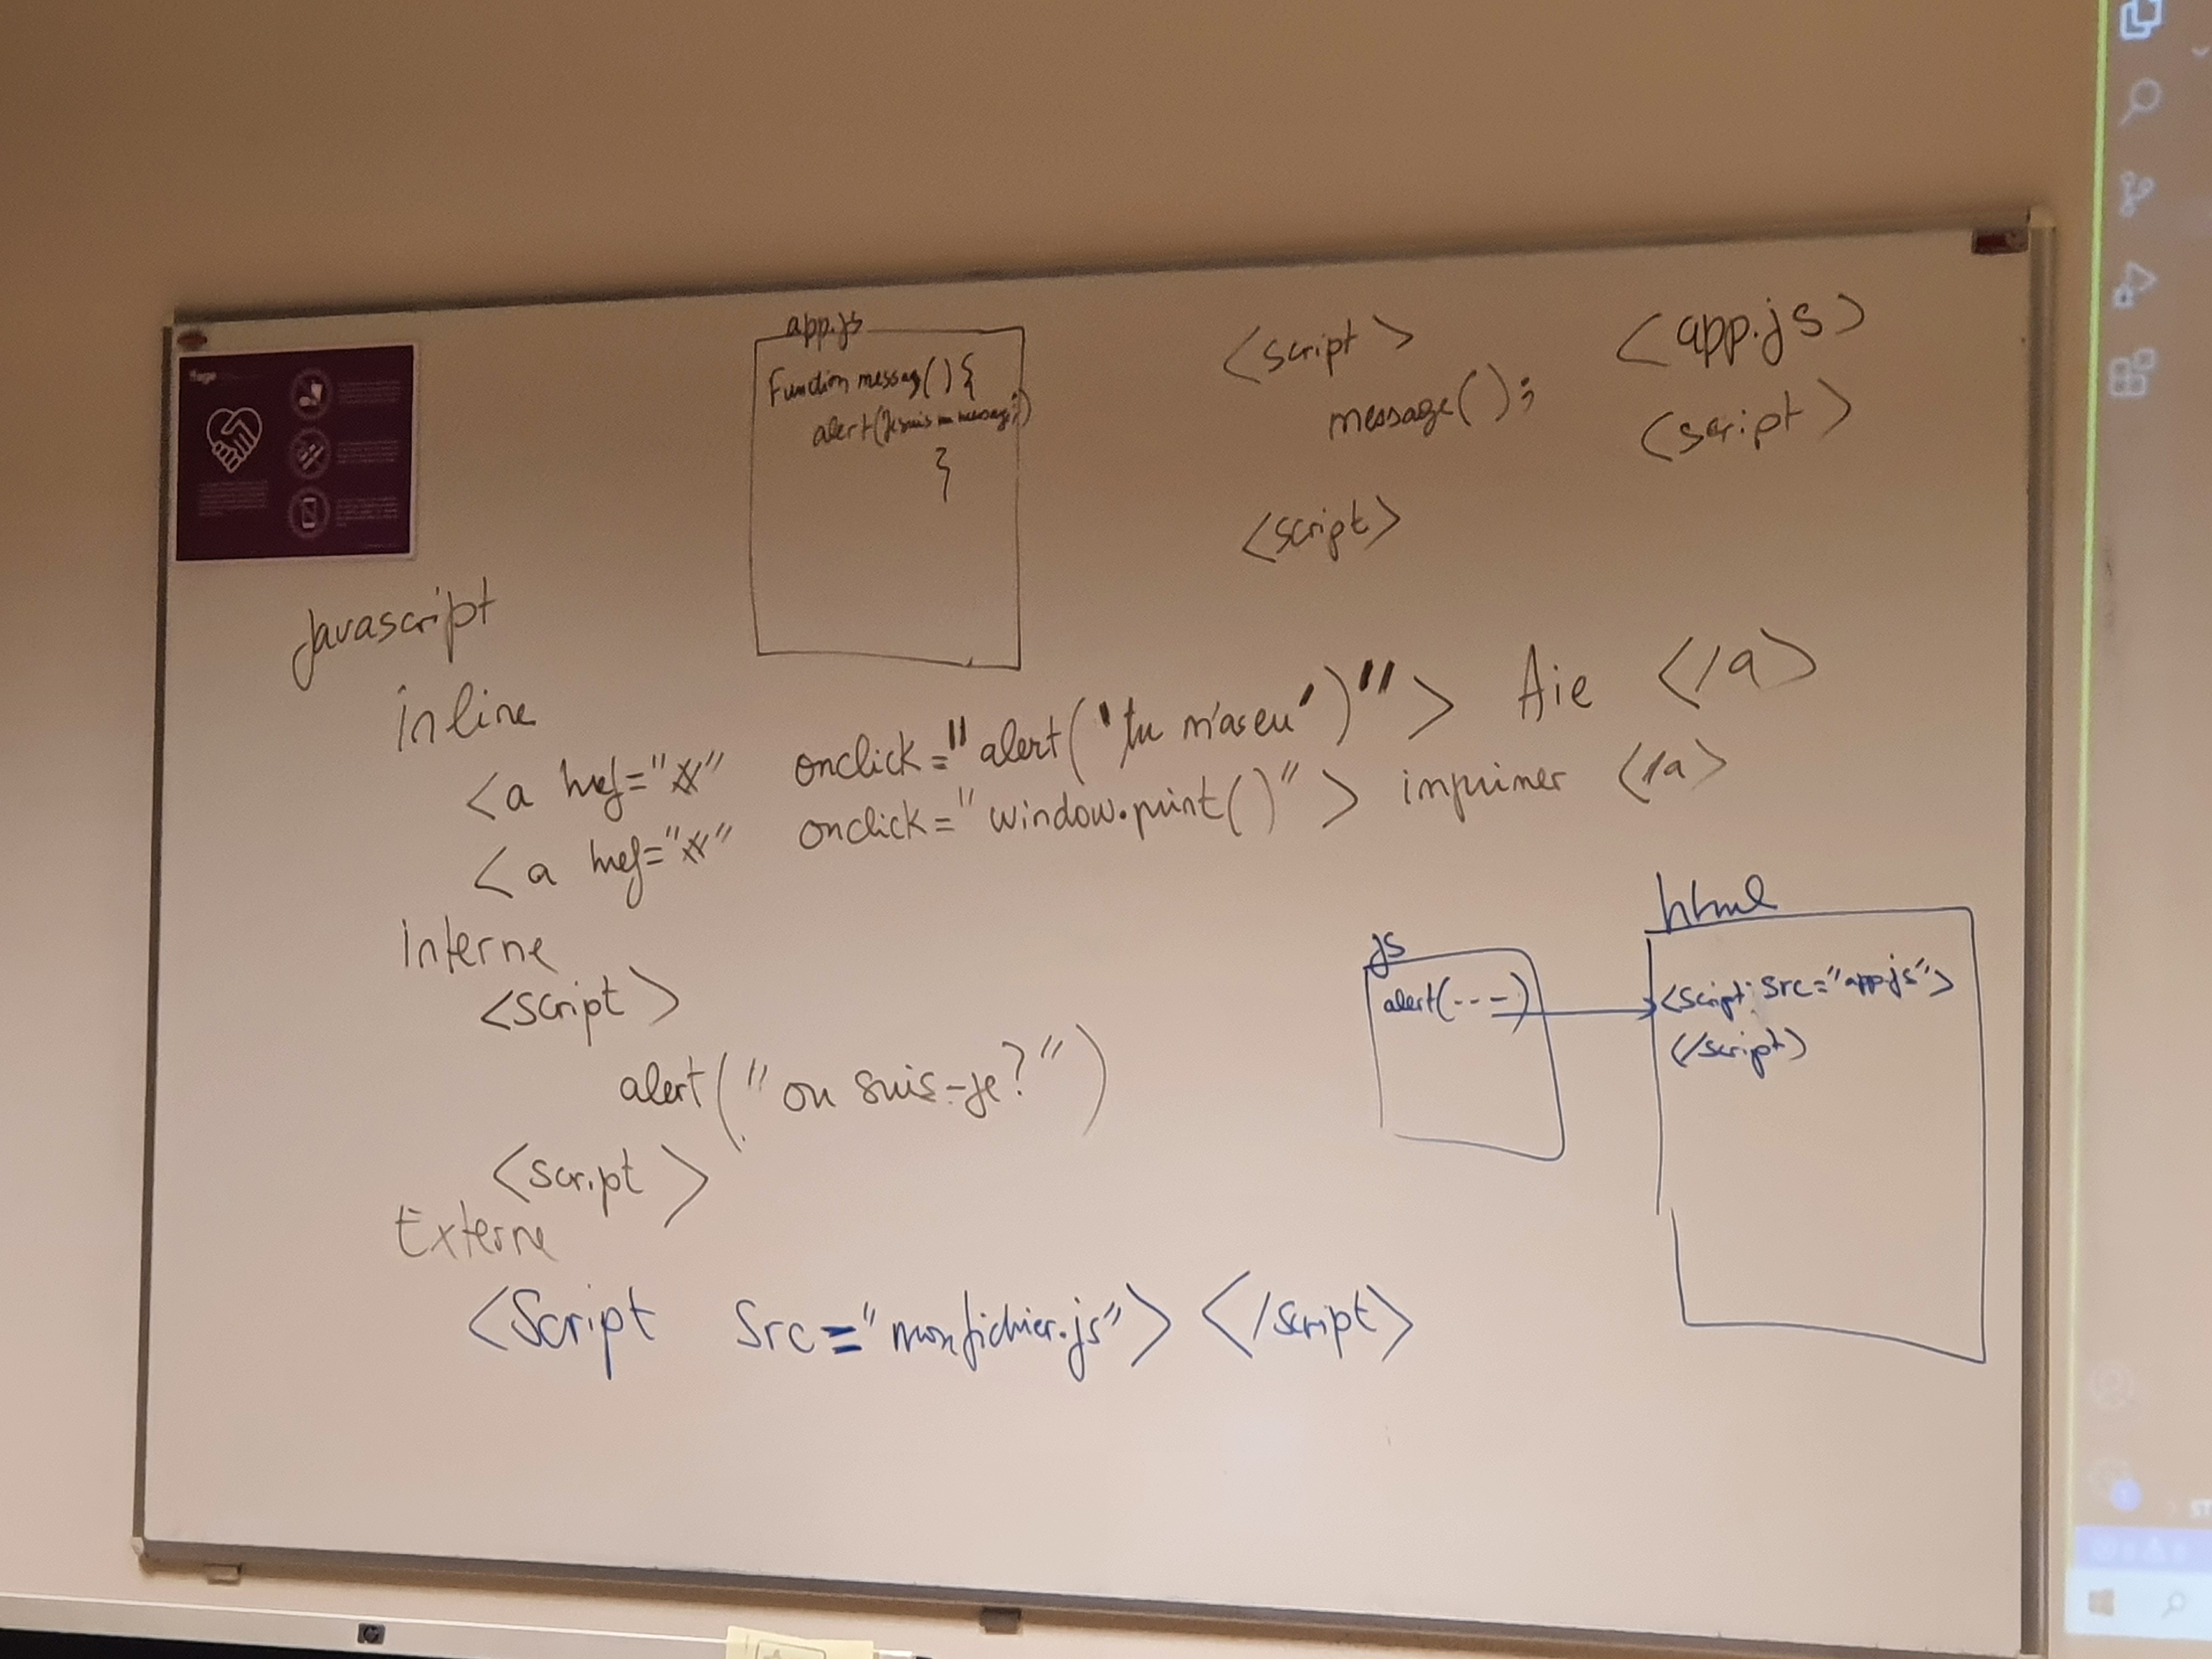 app.js
Function message() {
alert(Je suis un message;)
}
<script>
message();
<script>
<app.js>
<script>
Javascript
inline
<a href="#" onclick="alert('tu m'as eu')"> Aie </a>
<a href="#" onclick="window.print()"> imprimer </a>
interne
<script>
alert("ou suis-je?")
<script>
Externe
<Script Src="monfichier.js"> </script>
js
alert(---)
html
<script src="app.js">
</script>